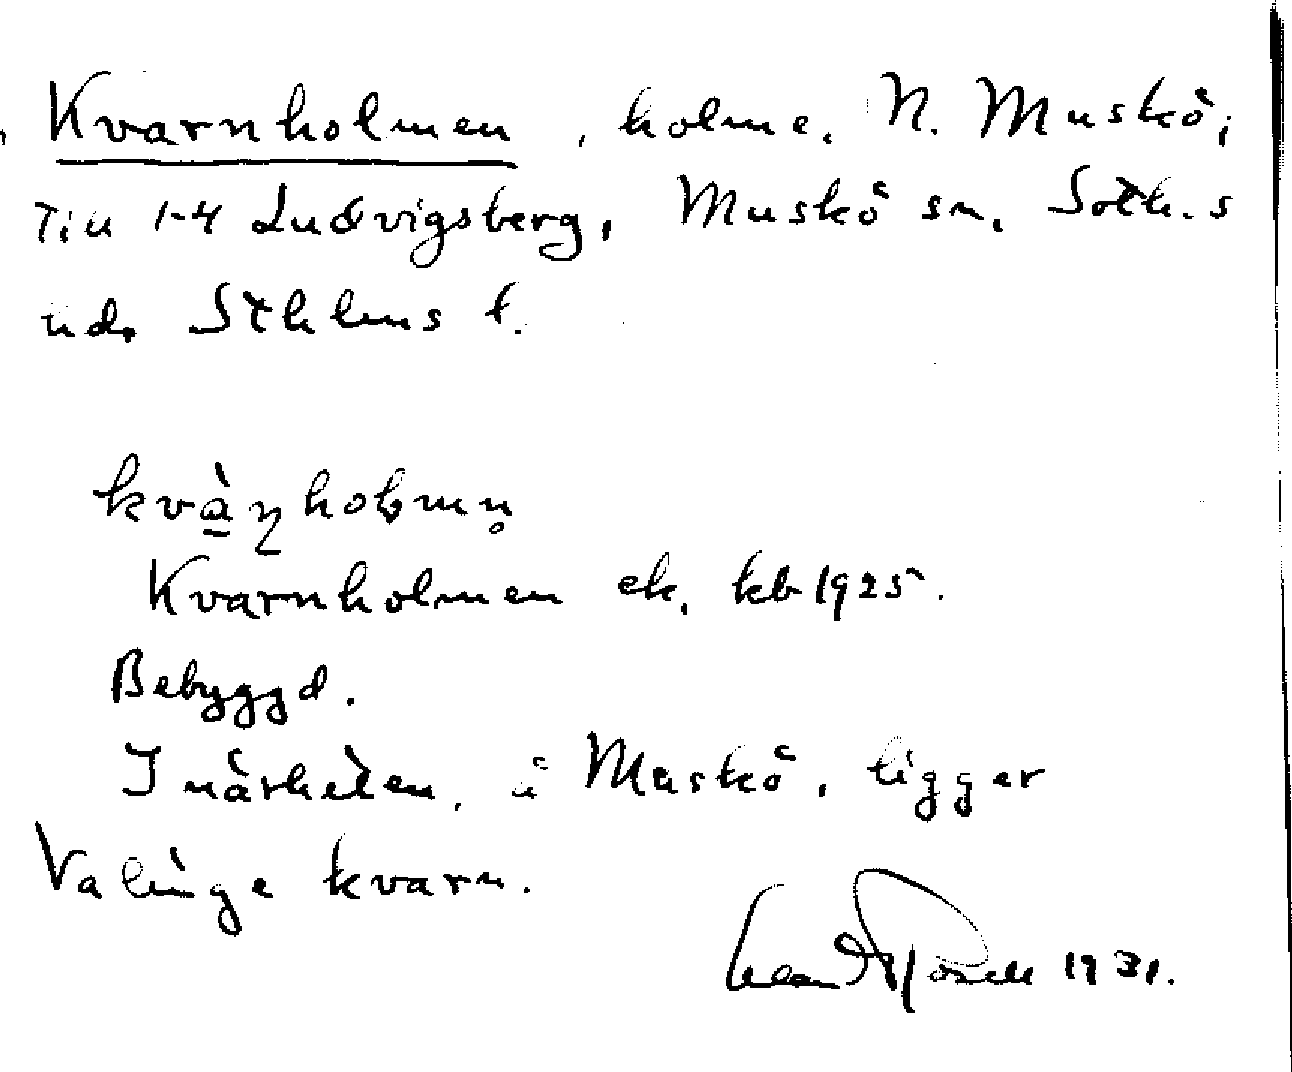 Kvarnholmen, holme. N. Muskö;
Till 1-4 Ludvigsberg, Muskö sn, Soth.s
hd, Sthlms l.
kvàɳholmn̥
Kvarnholmen ek. kb 1925.
Bebyggd.
I närheten, å Muskö, ligger
Valinge kvarn.
1931.